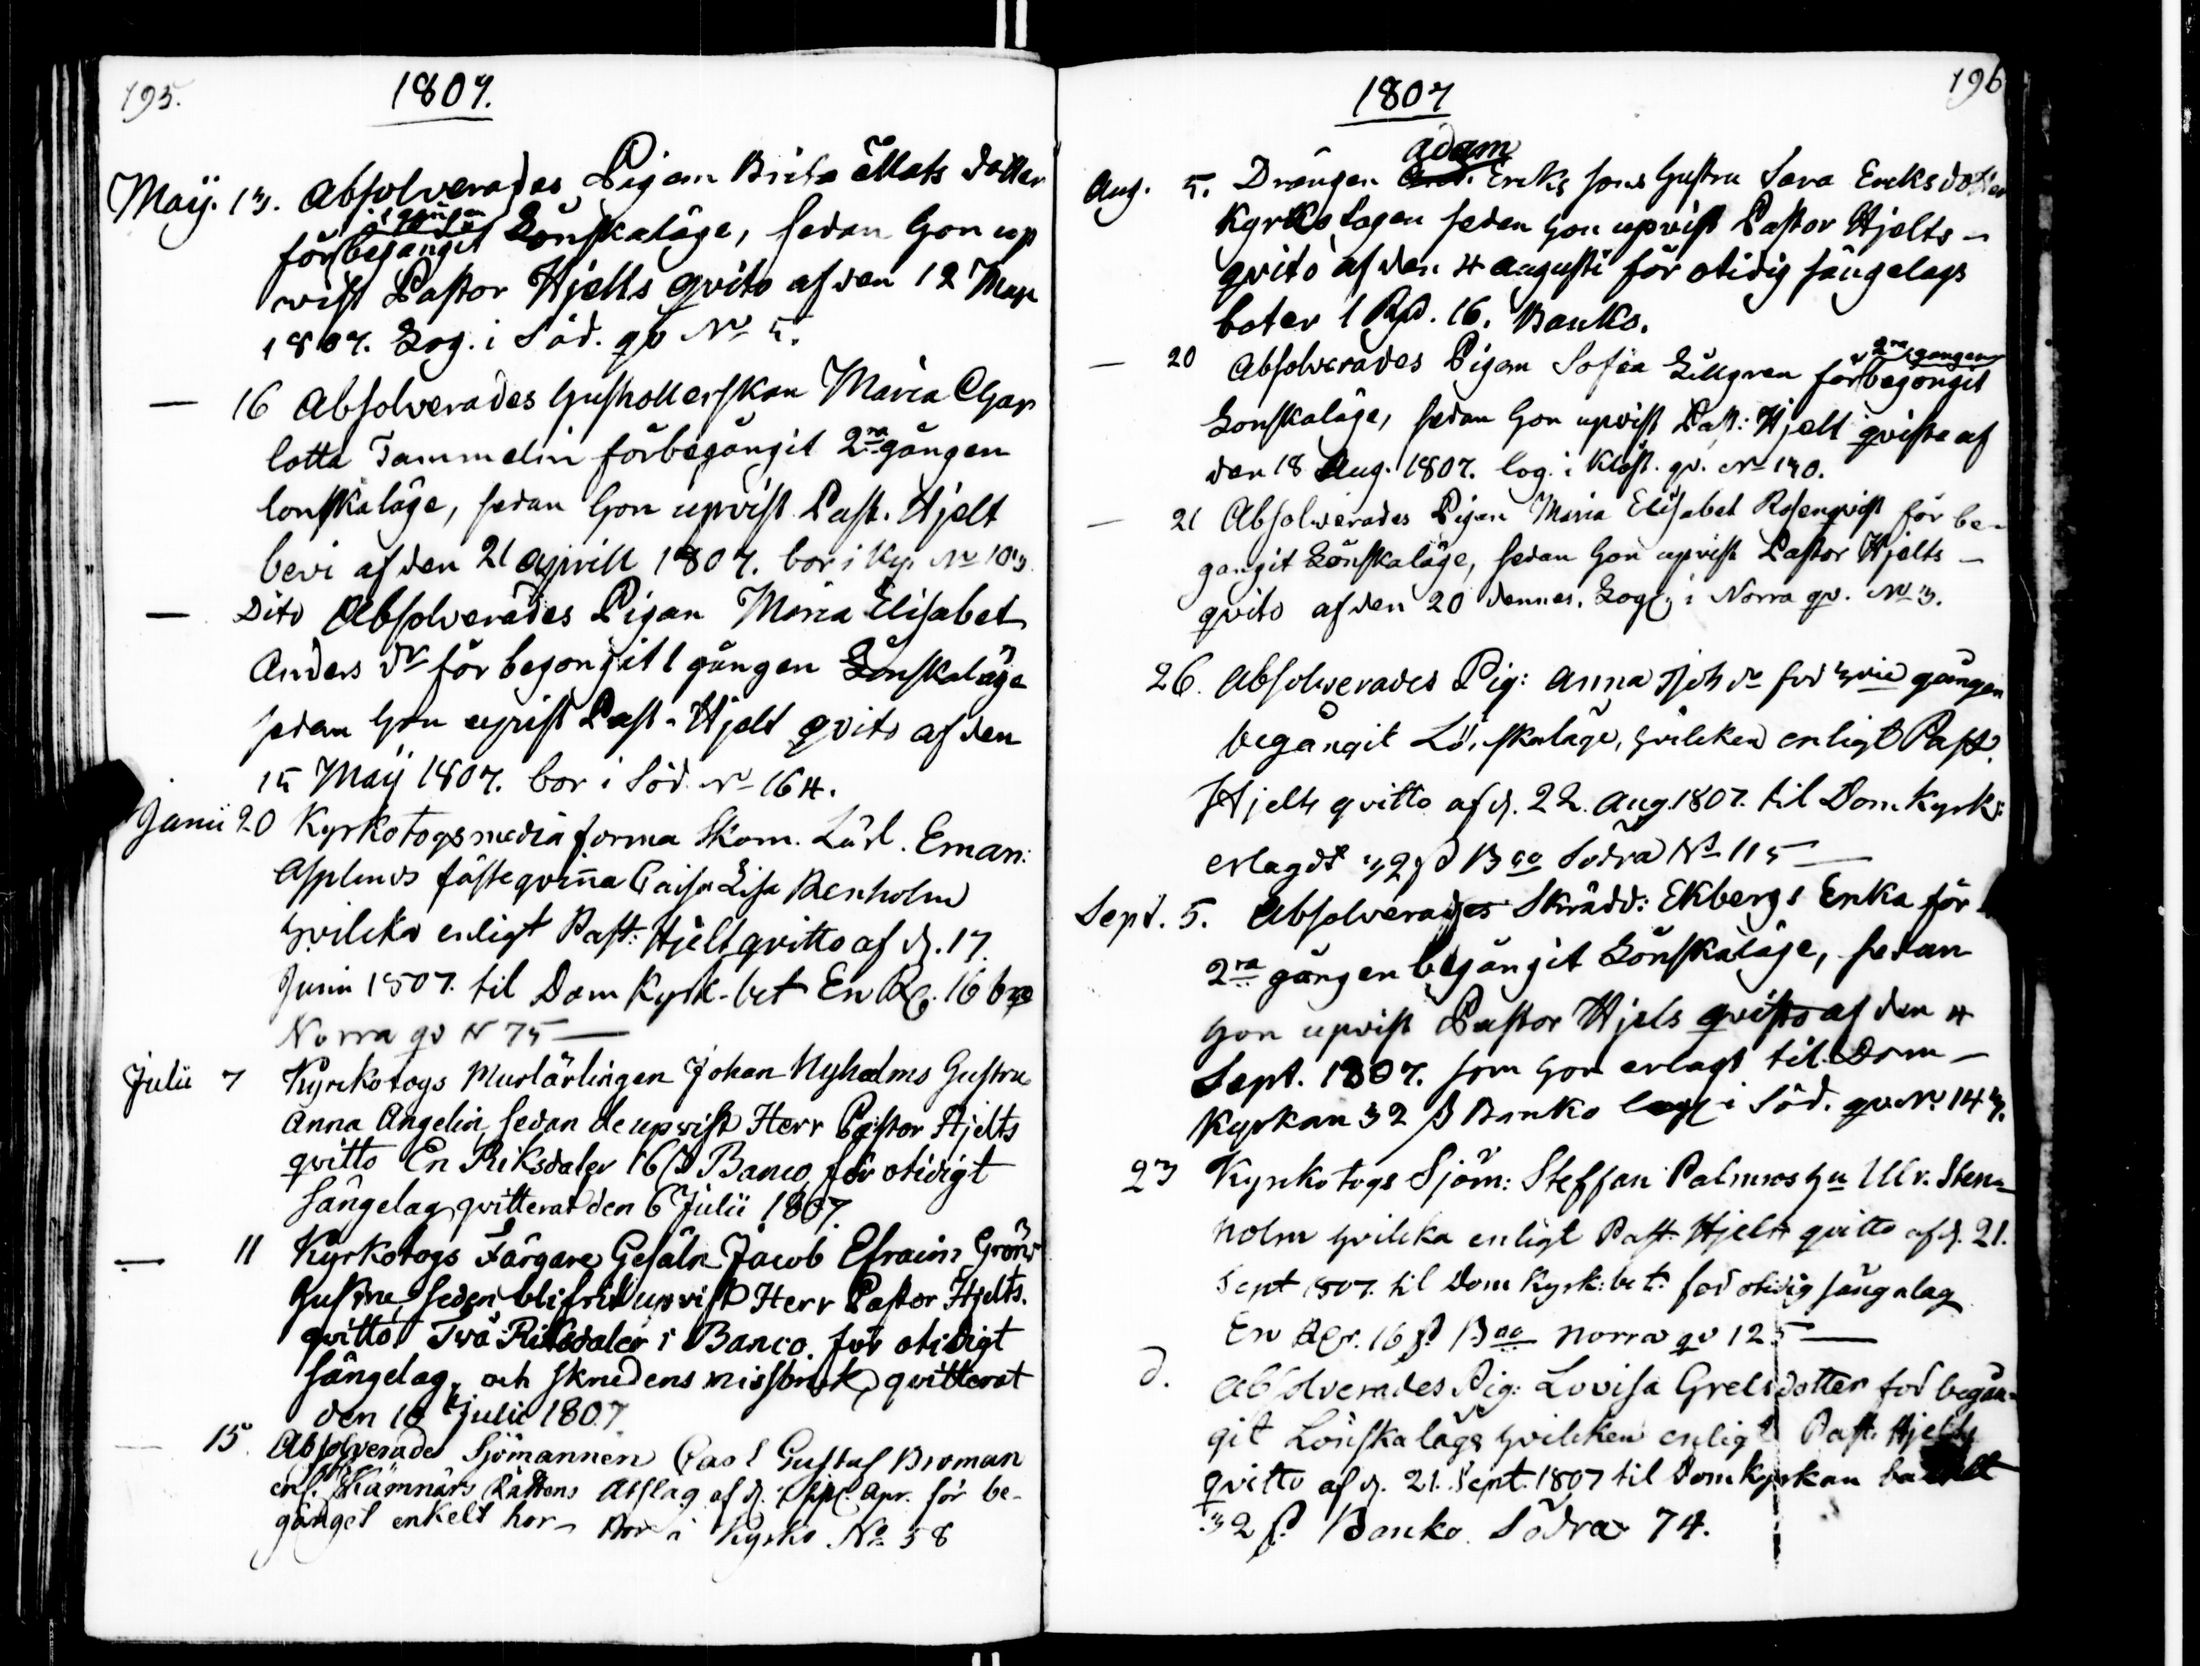 195.
1807.
Maÿ. 13. Absolverades Pigan Brita Mats dotter
1 gången
för begångit Lönskaläge, sedan hon up
vist Pastor Hjelts qvito af den 12 Maji
1807. Log. i Söd. qv No 5.
— 16 Absolverades hushollerskan Maria Char
lotta Tammelin förbegångit 2ra gången
lönskaläge, sedan hon upvist Past. Hjelt
bevi af den 21 aprill 1807. bor i Ky. No 103
— Dito Absolverades Pigan Maria Elisabet
Anders dr för begongit 1 gången Lönskaläge
sedan hon upvist Past. Hjelt qvito af den
15 Maÿ 1807. bor i Söd. No 164.
Junii 20 Kyrkotogs media forma Skom. Lärl. Eman:
Asplunds fästeqvinna Caisa Lisa Renholm
hvilcka enligt Past: Hjelt qvitto af d. 17.
Junii 1807. til Dom Kyrk. bet En Rd. 16 bco
Norra qv N 75 —
Julii 7 Kyrckotogs Murlärlingen Johan Nyholms hustru
Anna Angelin, sedan de upvist Herr Pastor Hjelts
qvitto En Riksdaler 16 s Banco, för otidigt
sängelag qvitterat den 6 Julii 1807.
— 11 Kyrkotogs Färgare Gesäln Jacob Efraim Gröns
hustru, sedan blifvit upvist Herr Pastor Hjelts.
qvitto Två Riksdaler i Banco. för otidigt
sängelag, och skrudens missbruk, qvitterat
den 10 Julii 1807.
— 15. Absolverades Sjömannen Carl Gustaf Broman
enl. Kämnärs Rättens Utslag af d. Apr. för be-
gånget enkelt hor — Bor i Kyrko No 58
196
1807
Adam
Aug. 5. Drängen And. Ericks sons hustru Sara Ericksdotter
Kyrkotogen sedan hon upvist Pastor Hjelts —
qvito af den 4 augusti för otidig sängelags
böter 1 Rd. 16. Banko.
2ra gången
— 20 Absolverades Pigan Sofia Lillgren för begongit
Lönskaläge, sedan hon upvist Past: Hjelt qvitto af
den 18 Aug. 1807. log. i Klöst. qv. No 130.
— 21 Absolverades Pigan Maria Elisabet Rosenqvist för be-
gangit Lönskaläge, sedan hon upvist Pastor Hjelts —
qvito af den 20 dennes. Log. i Norra qv. No 3.
26. Absolverades Pig: Anna Joh dr för 3die gången
begångit Lönskaläge, hvilcken enligt Past.
Hjelts qvitto af d. 22. Aug. 1807. til Dom Kyrk:
erlagdt 32 s Bco Södra No 115 —
Sept. 5. Absolverades Skrädd: Ekbergs Enka för
2ra gången begångit Lönskaläge, sedan
hon upvist Pastor Hjels qvitto af den 4
Sept. 1807. som hon erlagt til Dom —
Kyrkan 32 s Banko log. i Söd. qv. No 143.
23 Kyrkotogs Sjöm: Steffan Palmros hu Ulr. Sten-
holm hvilcka enligt Past. Hjelts qvitto af d. 21.
Sept 1807. til Dom Kyrk: bet. för otidig sängelag
En Rdr. 16 s. Bco Norra qv 125 —
d. Absolverades Pig: Lovisa Grelsdotter för begån-
git Lönskaläge hvilcken enligt Past. Hjelts
qvitto af d. 21. Sept. 1807 til Domkyrkan betalt
32 s. Banko. Södra 74.